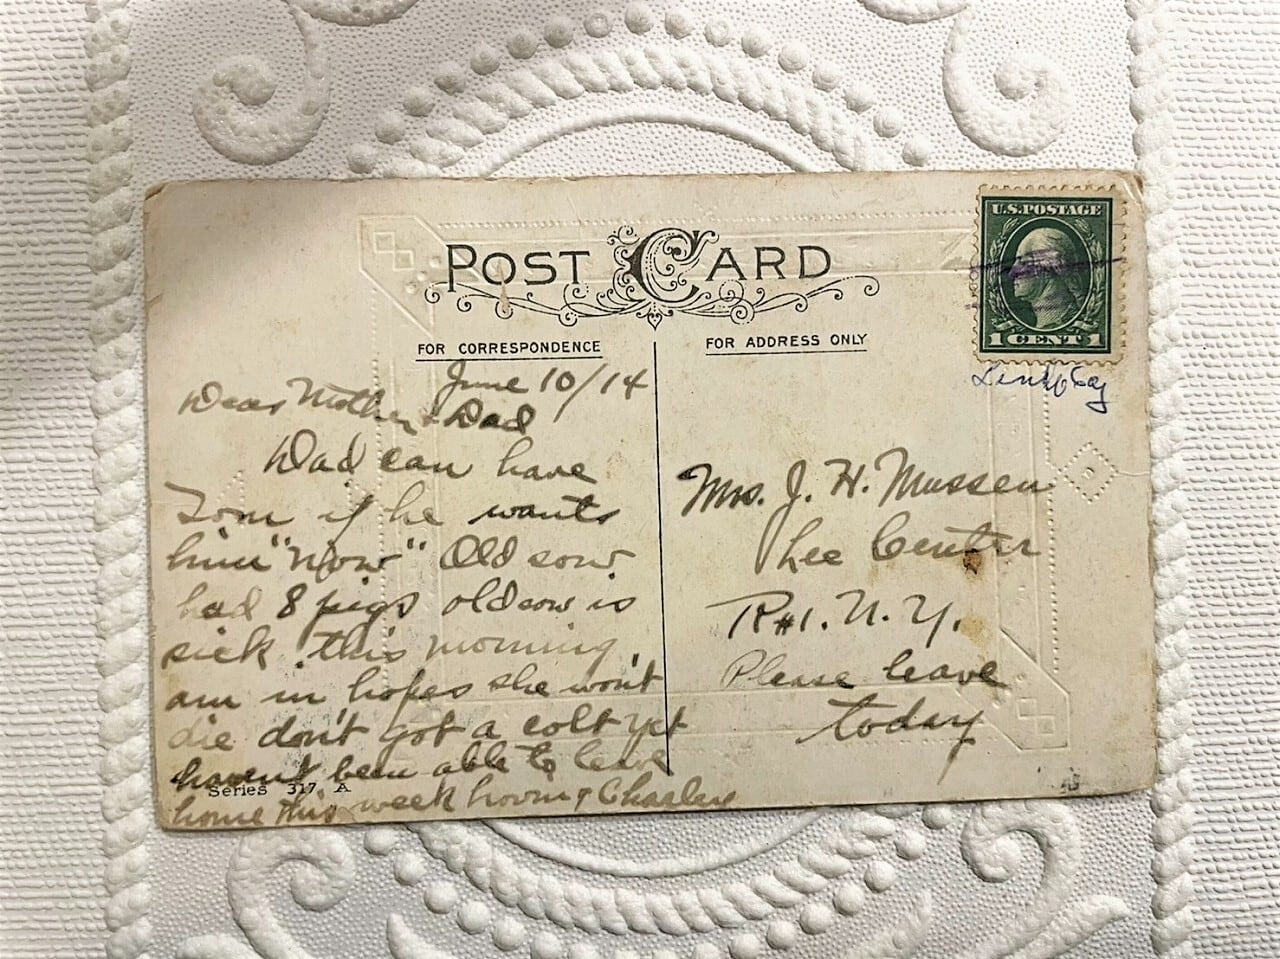 POST CARD
FOR CORRESPONDENCE
FOR ADDRESS ONLY
U.S. POSTAGE
1 CENT 1
June 10/14
Dear Mother & Dad
Dad can have
Tom if he wants
him "Now" Old sow
had 8 pigs old sow is
sick this morning,
am in hopes she won't
die don't got a colt yet
haven't been able to leave
home this week &
Series 317 A
Mrs. J. H. Mussen
Lee Center
R#1. N. Y.
Please leave
today